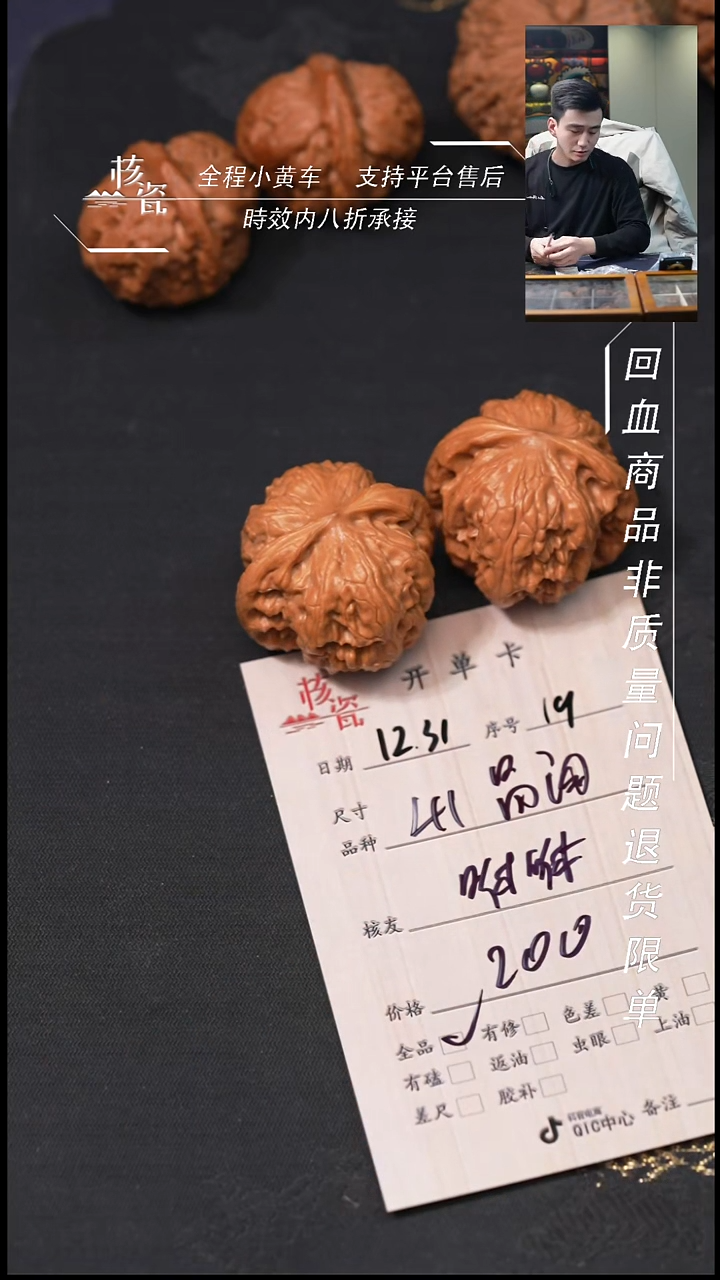 核瓷
全程小黄车 支持平台售后
時效内八折承接
回血商品非质量问题退货限单
核瓷
开单卡
日期 12.31 序号 19
尺寸
品种 41
核友
价格 200
全品 有修 色差 黄
有磕 返油 虫眼 上油
差尺 胶补
抖音电商
QIC中心 备注